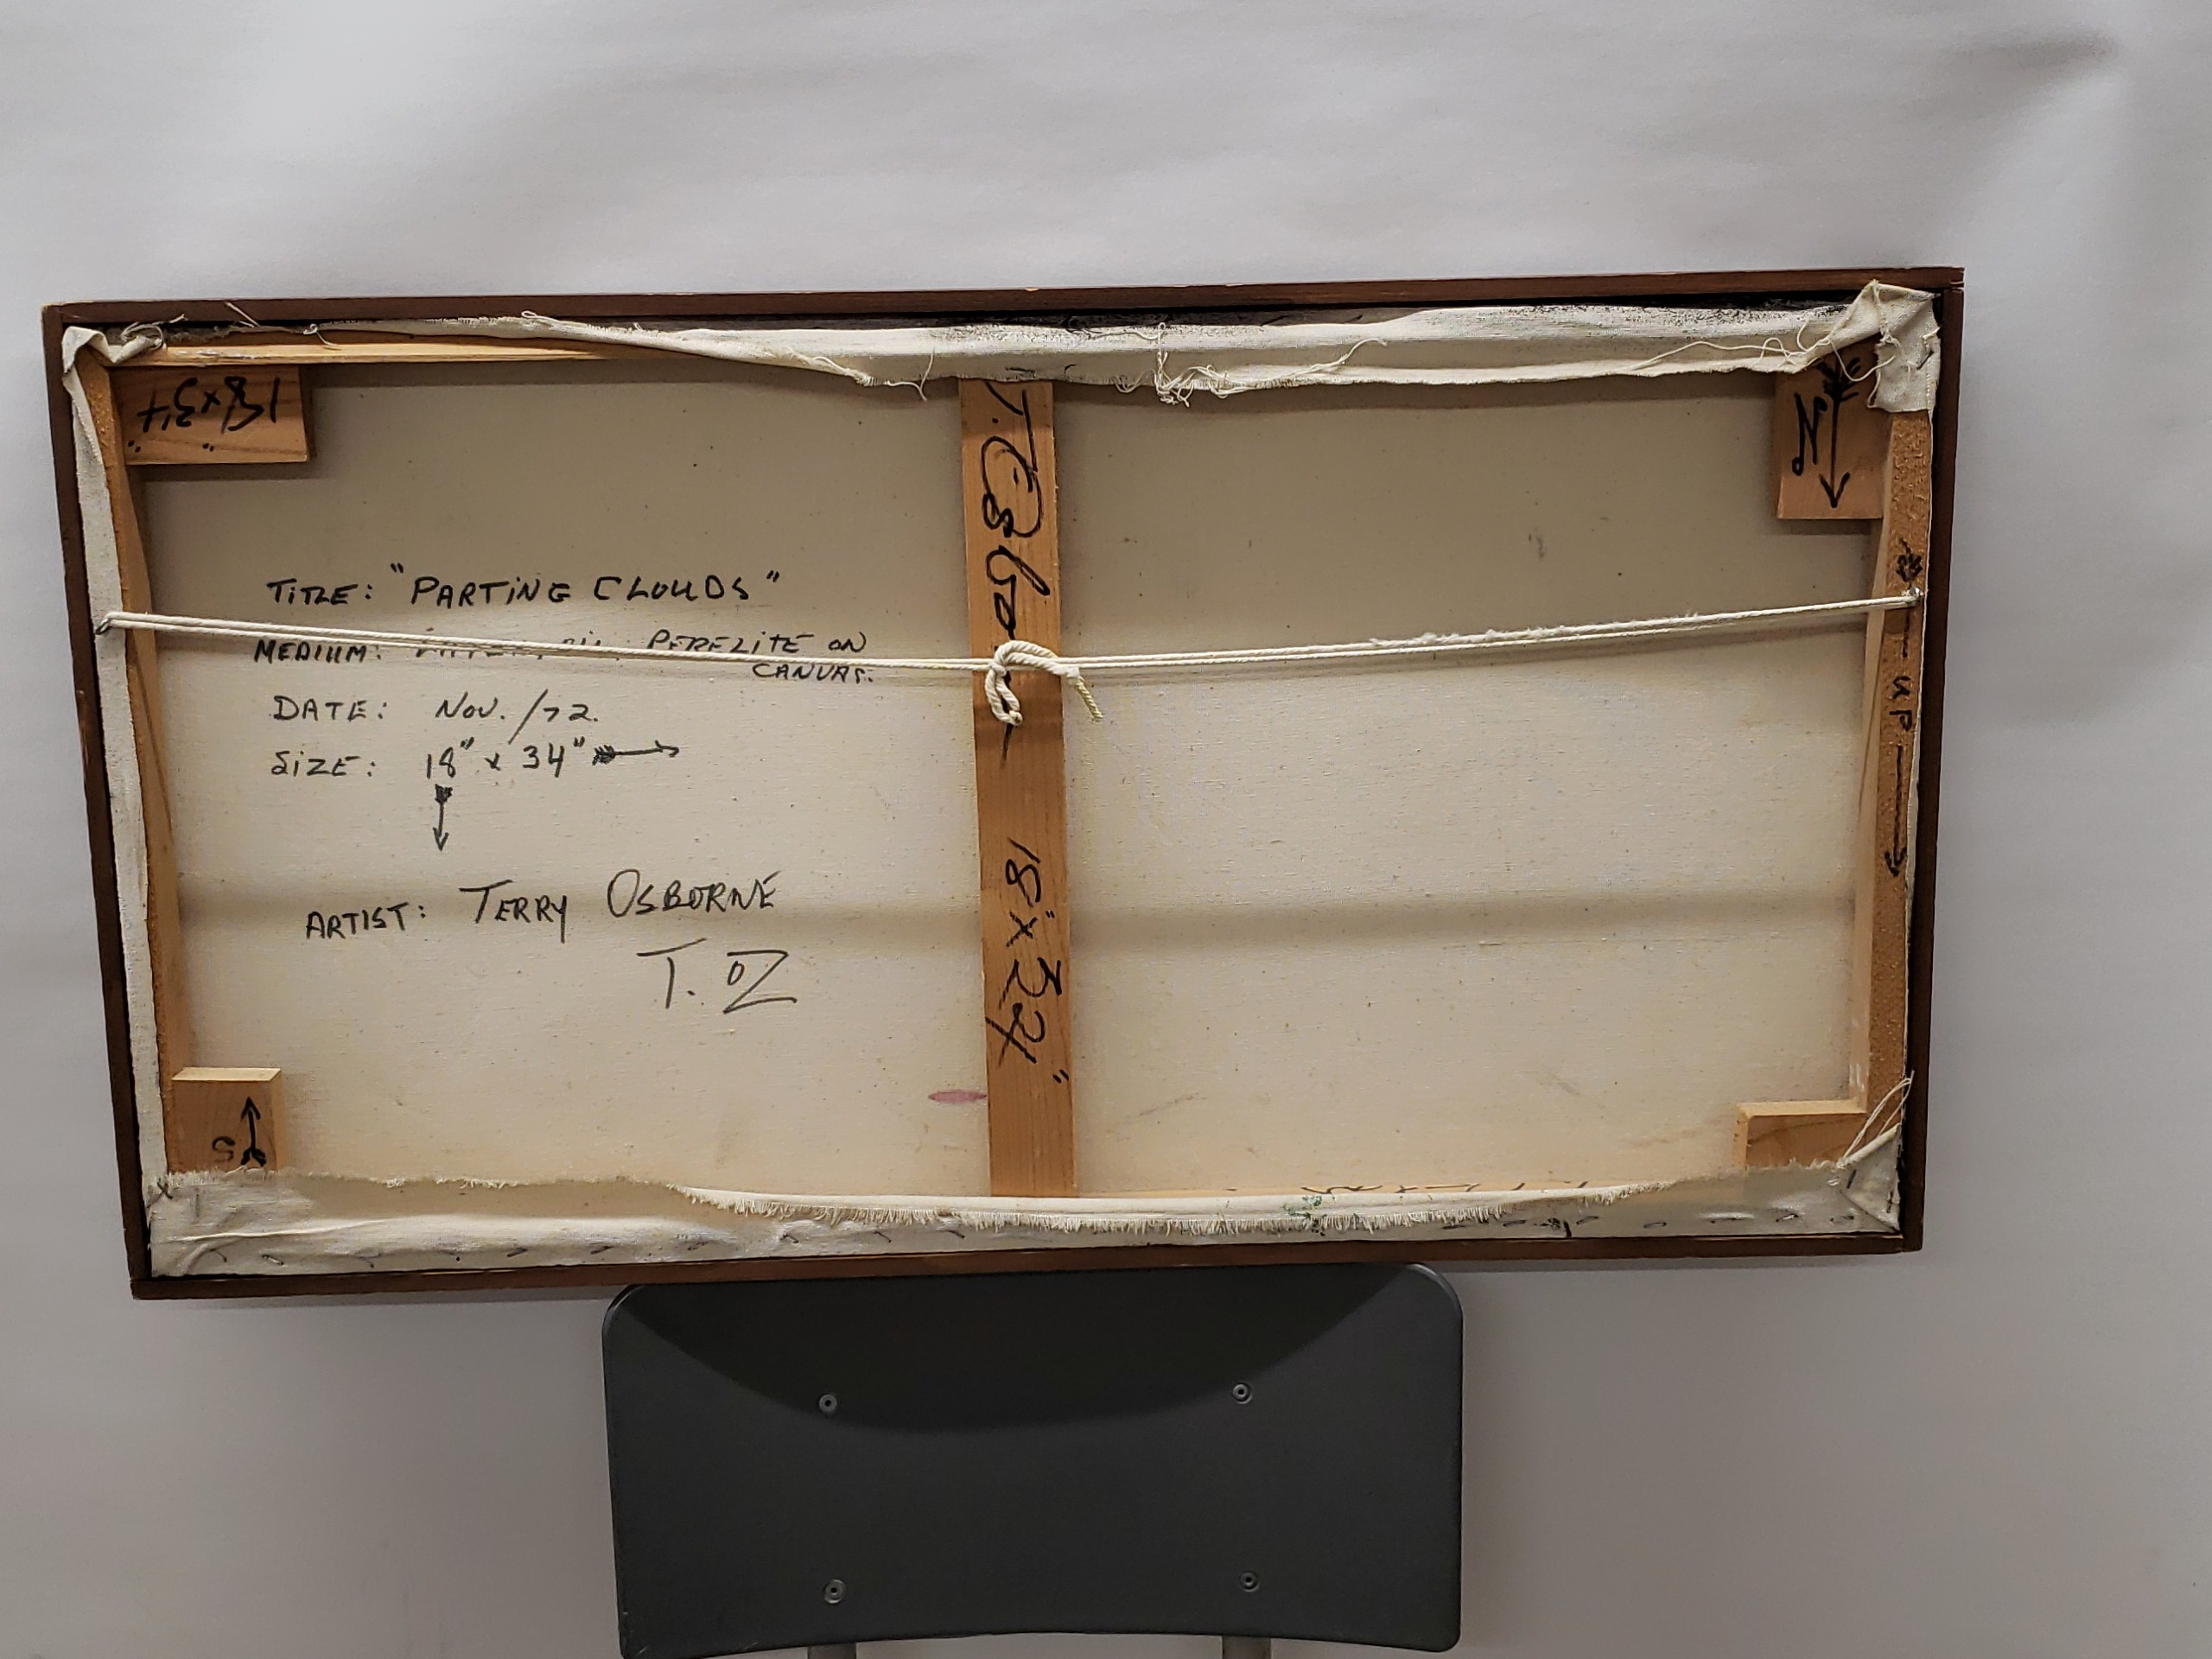 18"x34"
N
TITLE: "PARTING CLOUDS"
MEDIUM: PERELITE ON
CANVAS.
DATE: NOV. /72.
SIZE: 18" x 34"
ARTIST: TERRY OSBORNE
T. OZ
T. Osborne
18"x34"
UP
S